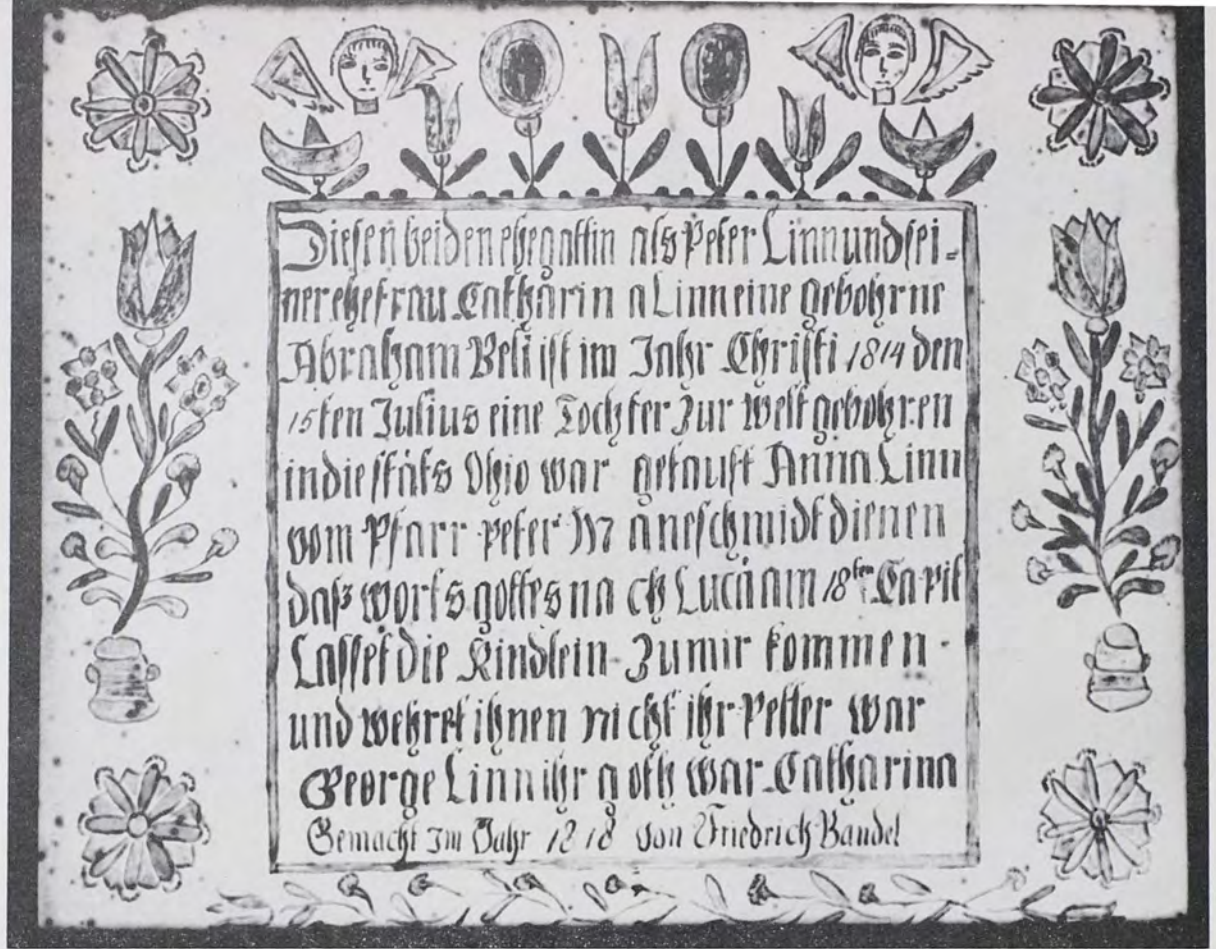 Diesen beiden ehegattin als Peter Linn und sei=
ner ehefrau Catharin a Linn eine gebohrne
Abraham ist im Jahr Christi 1814 den
15ten Julius eine Tochter Zur welt gebohren
in die stäts Ohio war getauft Anna Linn
vom Pfarr peter M aneschmidt dienen
daß worts gottes na ch Lucä am 18ten Capit
Lasset die Kindlein Zu mir kommen
und wehret ihnen nicht ihr Petter war
George Linn ihr goth war Catharina
Gemacht Im Jahr 1818 von Friedrich Bandel